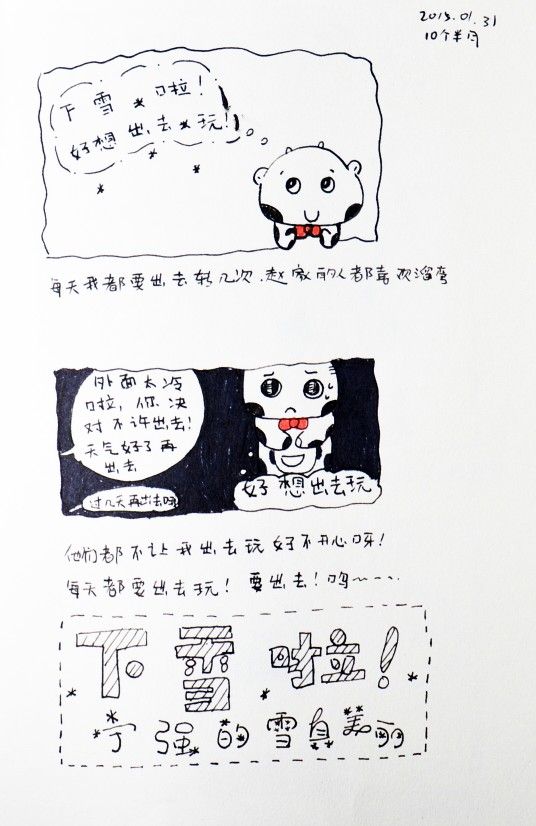 2015.01.31
10个半月
下雪啦!
好想出去玩!
每天我都要出去转几次.赵家的人都喜欢溜弯
外面太冷
啦,你决
对不许出去!
天气好了再
出去
过几天再出去呗
好想出去玩
他们都不让我出去玩好不开心呀!
每天都要出去玩! 要出去!呜~~~
下雪啦!
宁强的雪真美丽